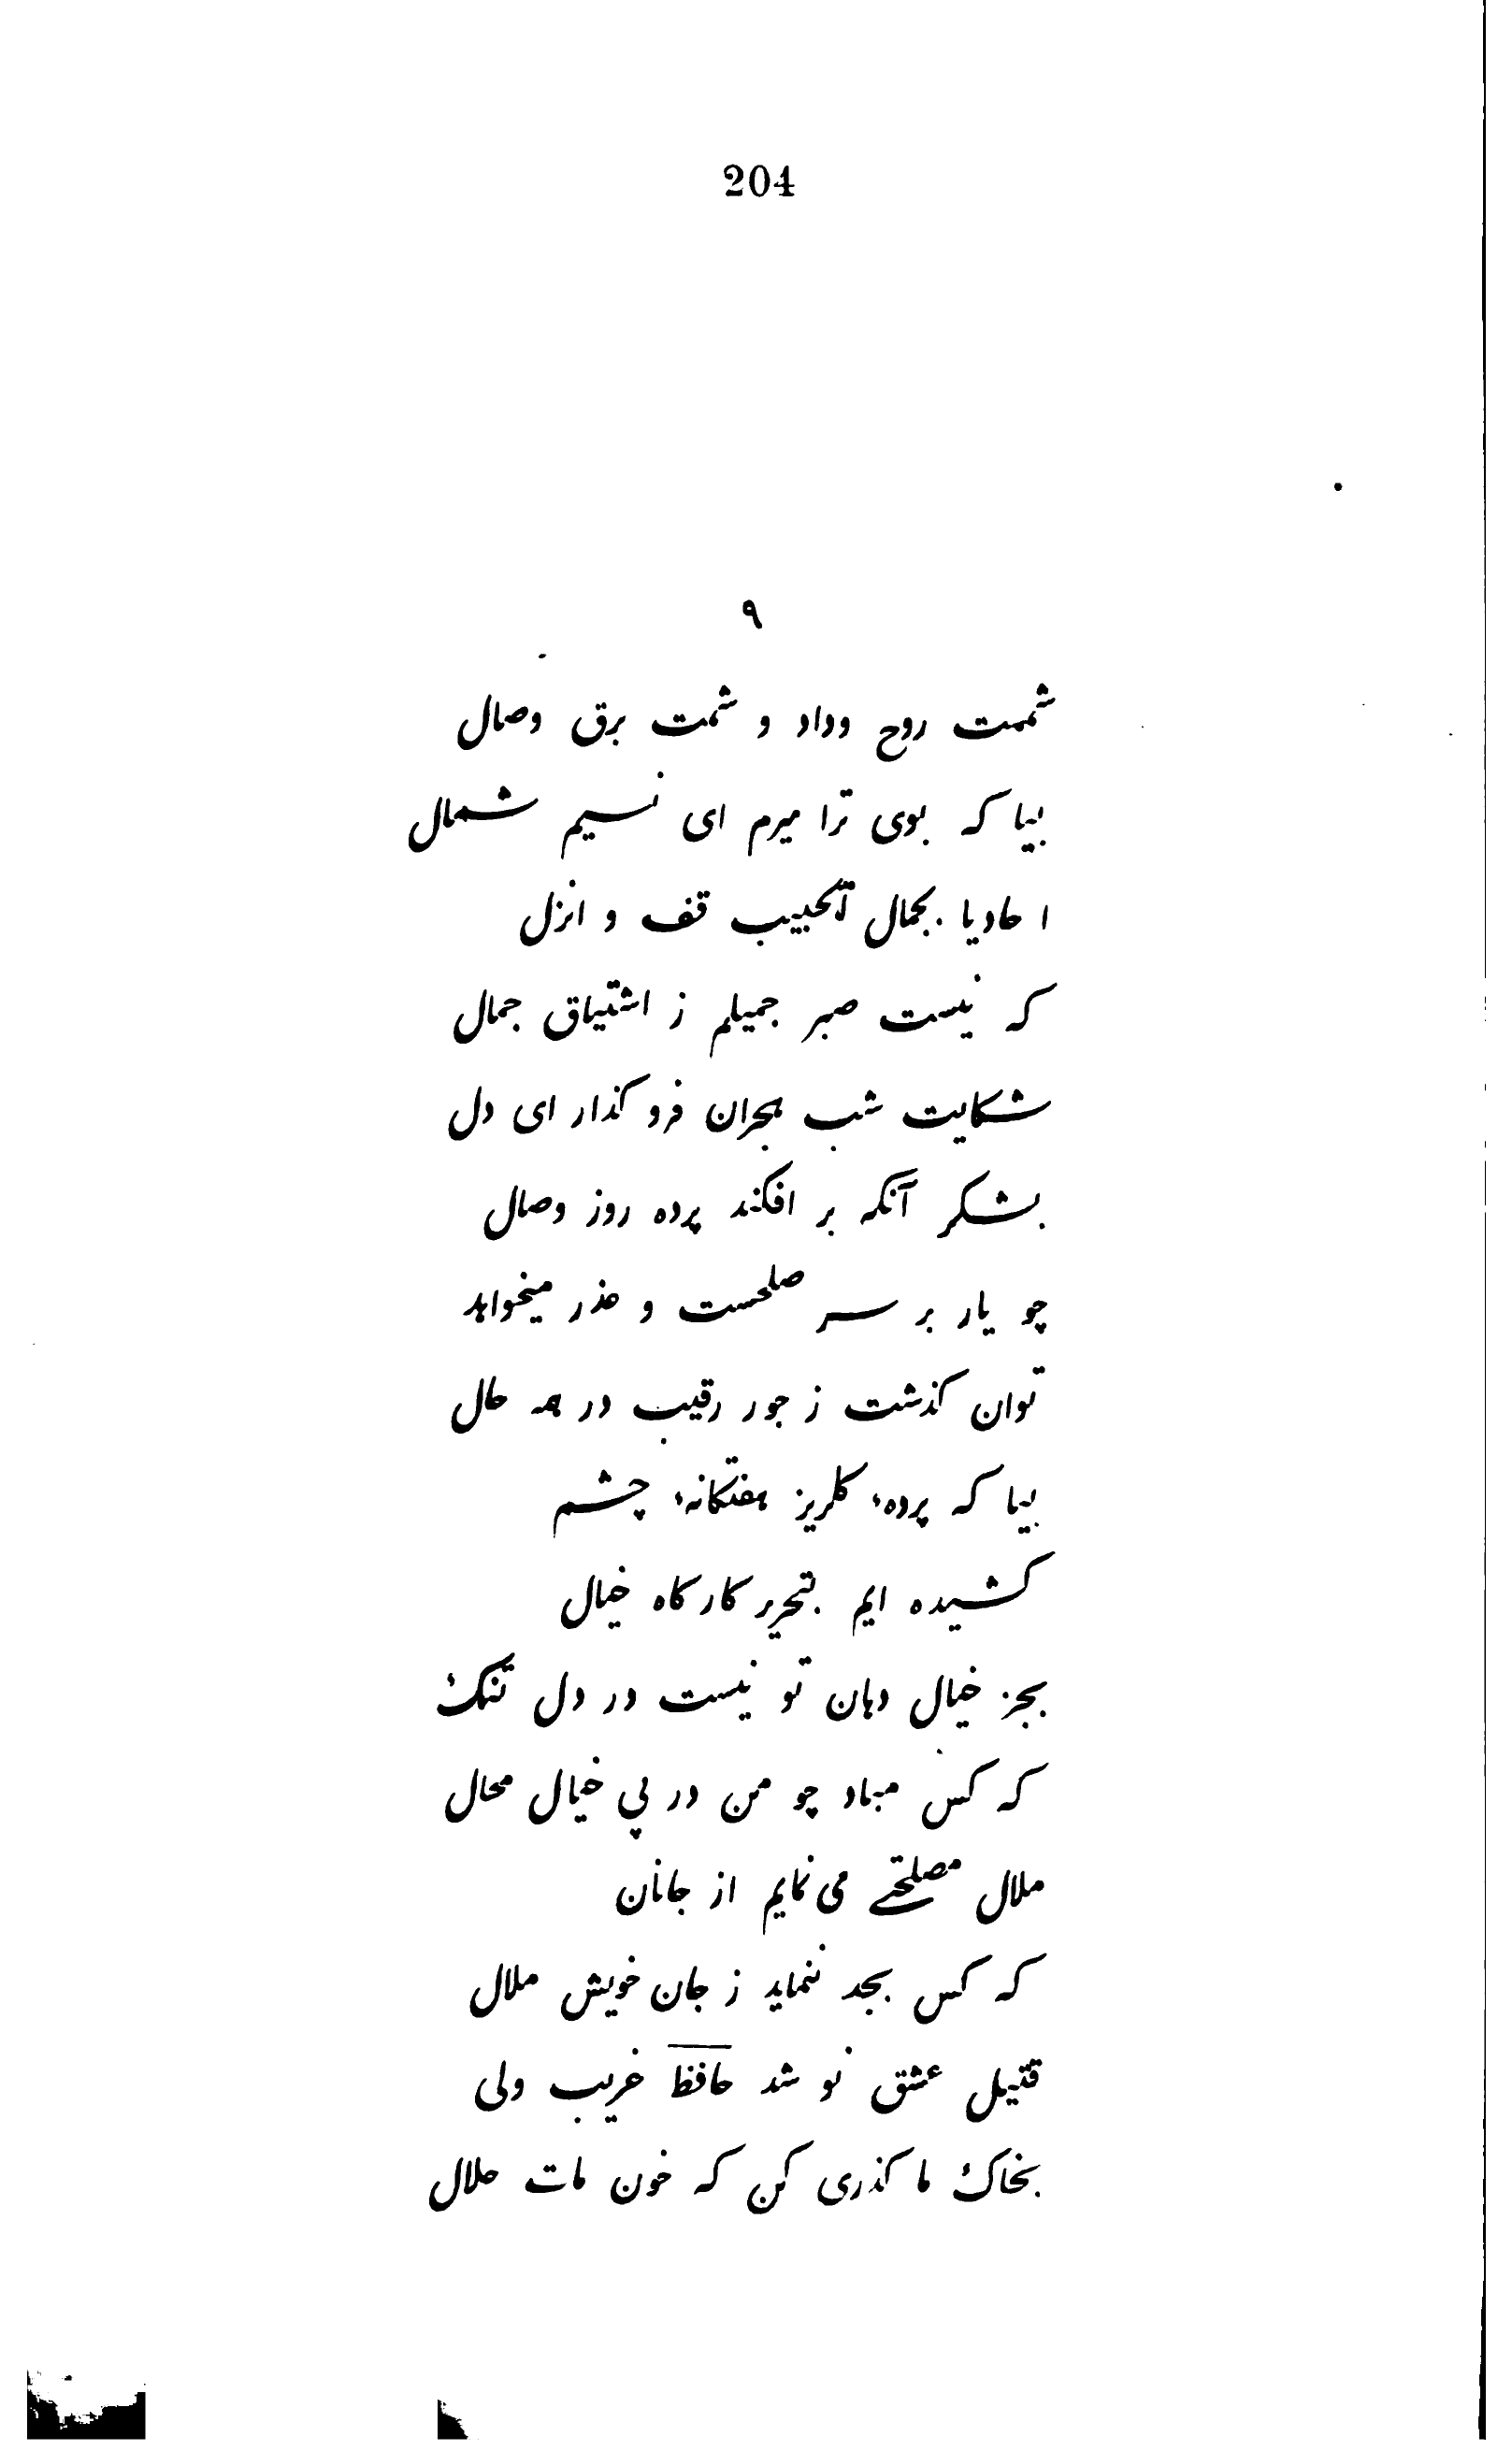 204
٩
شممت روح وداد و شمت برق وصال
بیا که بوی ترا میرم ای نسیم شمال
ا حادیا بجمال آلحبیب قف و انزل
که نیست صبر جمیلم ز اشتیاق جمال
شکایت شب هجران فرو کذار ای دل
بشکر آنکه بر افکند پرده روز وصال
چو یار بر سر صلحست و عذر میخواهد
توان کذشت ز جور رقیب در همه حال
بیا که پردهٔ کلریز هفتکانهٔ چشم
کشیده ایم بتحریر کارکاه خیال
بجز خیال دهان تو نیست در دل تنک
که کس مباد چو من در پی خیال محال
ملال مصلحتی می نمایم از جانان
که کس بجد ننماید ز جان خویش ملال
قتیل عشق تو شد حافظ غریب ولی
بخاک ما کذری کن که خون مات حلال